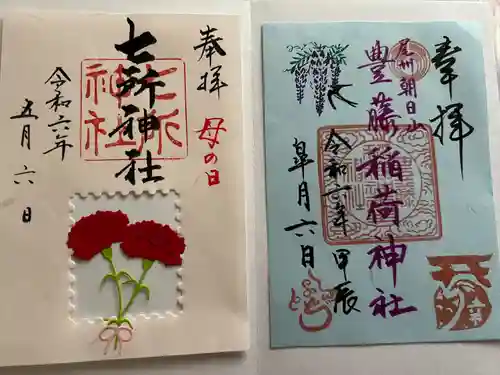 奉拝
母の日
七所神社
七所
神社
令和六年
五月六日
奉拝
尾州朝日山
豊藤稲荷神社
令和六年
甲辰
皐月六日